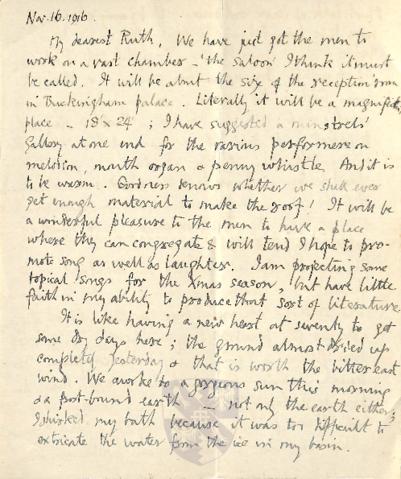 Nov. 16. 1916.
My dearest Ruth, We have just got the men to
work on a vast chamber – 'the saloon' I think it must
be called. It will be about the size of the reception room
in Buckingham Palace. Literally it will be a magnificent
place – 18' x 24' ; I have suggested a minstrels'
gallery at one end for the various performers on
melodion, mouth organ & penny whistle. And it is
to be warm. Goodness knows whether we shall ever
get enough material to make the roof! It will be
a wonderful pleasure to the men to have a place
where they can congregate & will tend I hope to pro-
mote song as well as laughter. I am projecting some
topical songs for the Xmas season, but have little
faith in my ability to produce that sort of literature
It is like having a new heart at seventy to get
some dry days here ; the ground almost dried up
completely yesterday & that is worth the bitter east
wind. We awoke to a gorgeous sun this morning
& a frost-bound earth – not only the earth either;
I shirked my bath because it was too difficult to
extricate the water from the ice in my basin.